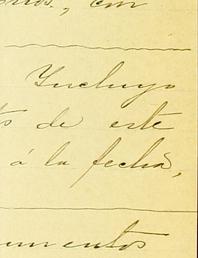 con
Incluyo
de este
á la fecha,
umentos